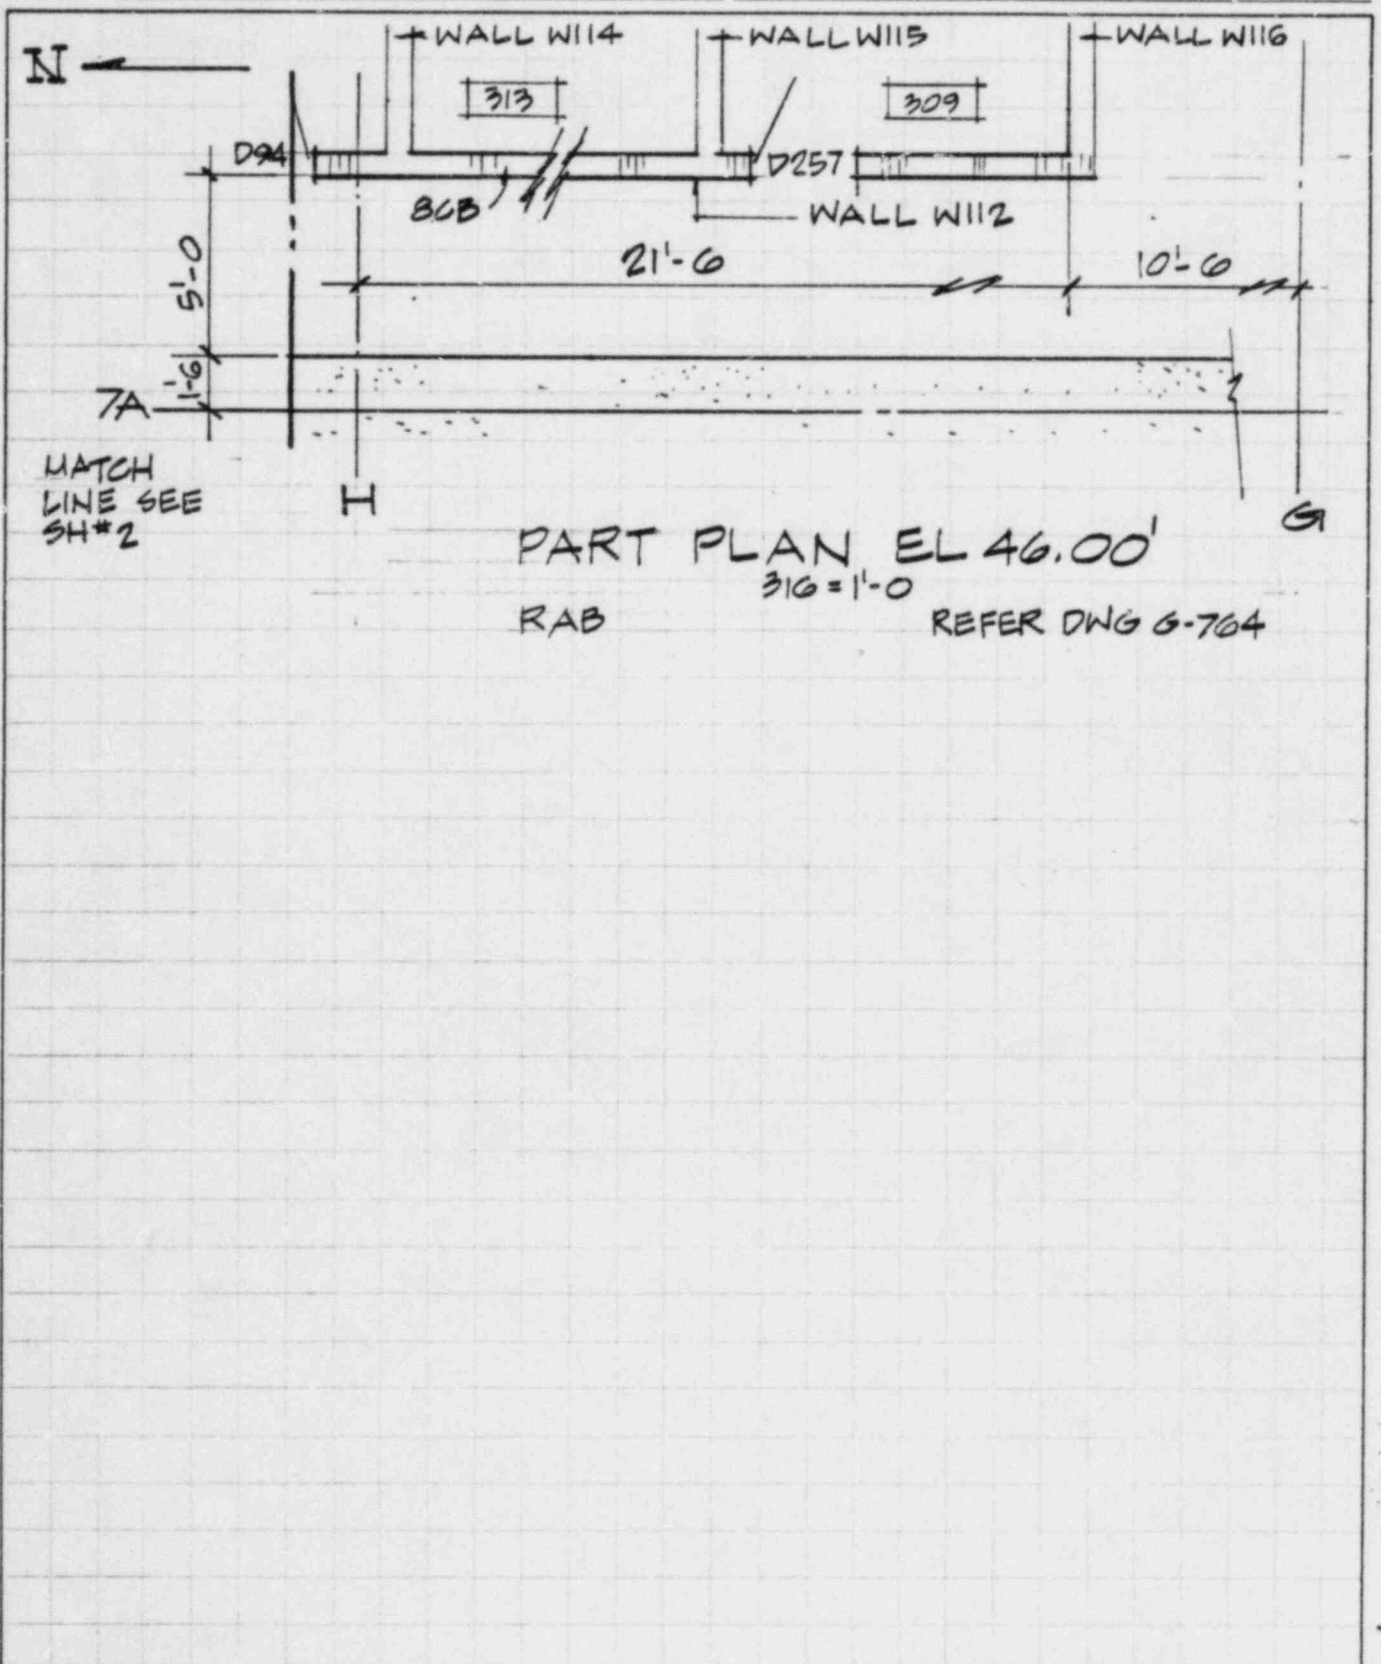 WALL W114
WALL W115
WALL W116
N
313
309
D94
D257
8CB
WALL W112
5'-0
21'-6
10'-6
1'-6
7A
MATCH
LINE SEE
SH#2
H
G
PART PLAN EL 46.00'
316 = 1'-0
RAB
REFER DWG G-764